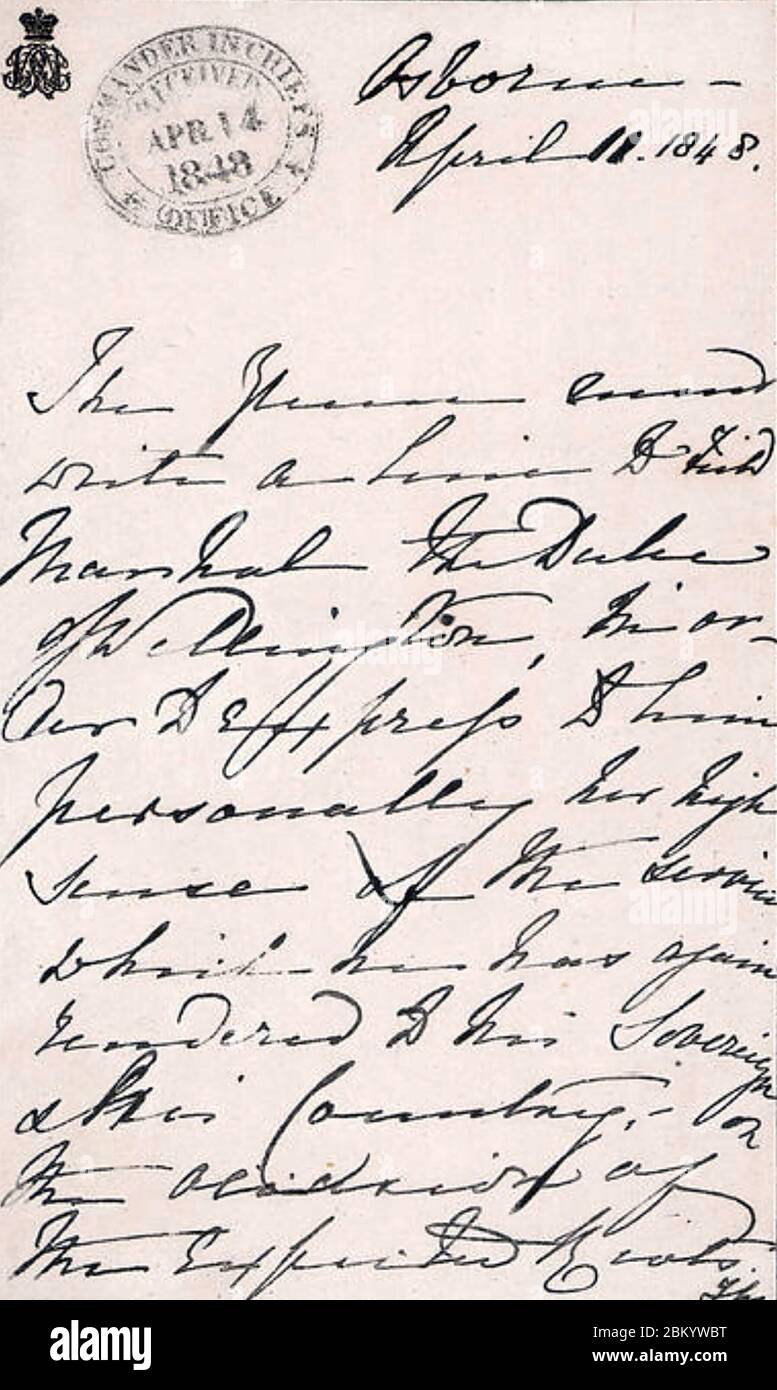 COMMANDER IN CHIEF'S
RECEIVED
APR 14
1848
OFFICE
Osborne –
April 11. 1848.
The Queen must
write a line to Field
Marshal the Duke
of Wellington, in or-
der to express to him
personally her high
sense of the service
which he has again
rendered to his Sovereign
& his Country, – on
the occasion of
the expected Riots.
The
alamy
Image ID: 2BKYWBT
www.alamy.com